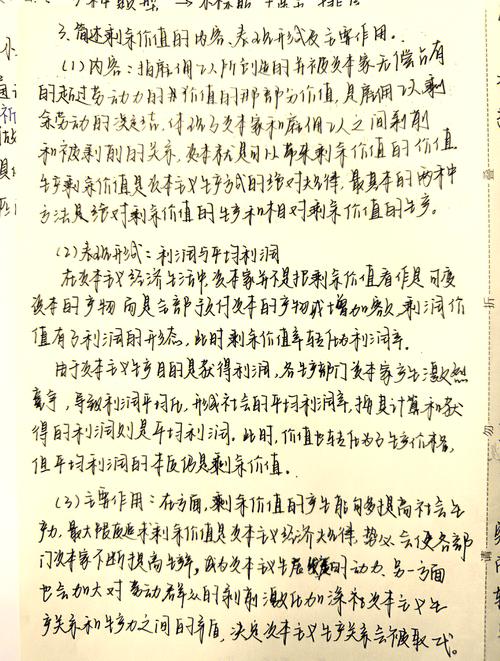 3. 简述剩余价值的内容、表现形式及主要作用。
(1) 内容：指雇佣工人所创造的并被资本家无偿占有
的超过劳动力的价值的那部分价值，是雇佣工人剩
余劳动的凝结，体现了资本家和雇佣工人之间剥削
和被剥削的关系，资本就是可以带来剩余价值的价值
生产剩余价值是资本主义生产方式的绝对规律，最基本的两种
方法是绝对剩余价值的生产和相对剩余价值的生产。
(2) 表现形式：利润与平均利润
在资本主义经济生活中，资本家并不是把剩余价值看作是可变
资本的产物而是全部预付资本的产物或增加额，剩余价
值有了利润的形态，此时剩余价值率转化为利润率。
由于资本主义生产目的是获得利润，各生产部门资本家产生激烈
竞争，导致利润平均化，形成社会的平均利润率，按其计算和获
得的利润则是平均利润。此时，价值也转化为了生产价格，
但平均利润的本质仍是剩余价值。
(3) 主要作用：在方面，剩余价值的产生能够提高社会生
产力，最大限度追求剩余价值是资本主义经济规律，势必会使各部
门资本家不断提高生产率，成为资本主义生产发展的动力。另一方面
也会加大对劳动群众的剥削激化加深社会资本主义生
产关系和生产力之间的矛盾，决定资本主义生产关系会被取代。